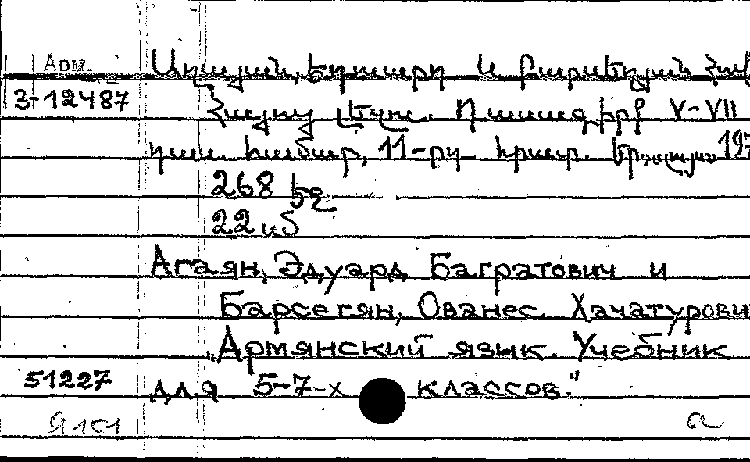 Арм. Աղայան, Էդուարդ և Բարսեղյան Հով
3-12487 Հայոց լեզու. Դասագիրք V-VII
դաս. համար, 11-րդ հրատ. Երևան 197
268 էջ
22 սմ
Агаян, Эдуард Багратович и
Барсегян, Ованес Хачатурови
„Армянский язык. Учебник
51227 для 5-7-х классов."